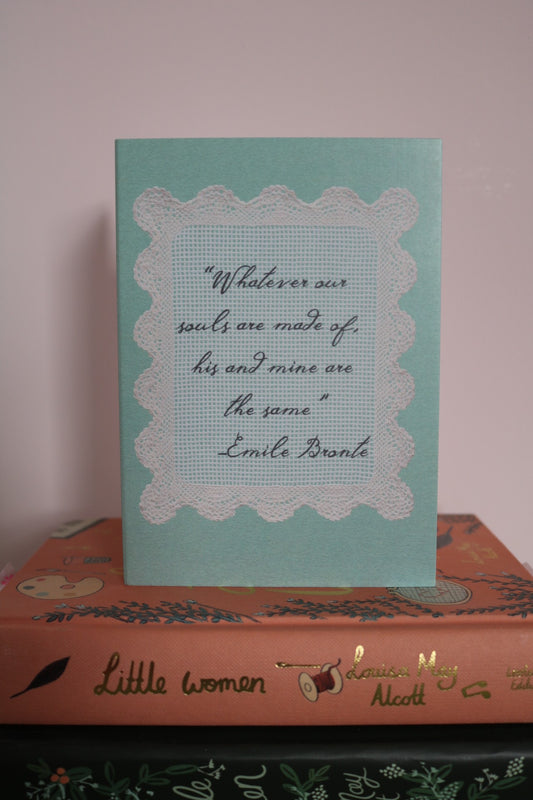 "Whatever our
souls are made of,
his and mine are
the same"
-Emile Bronte
Little Women
Louisa May
Alcott